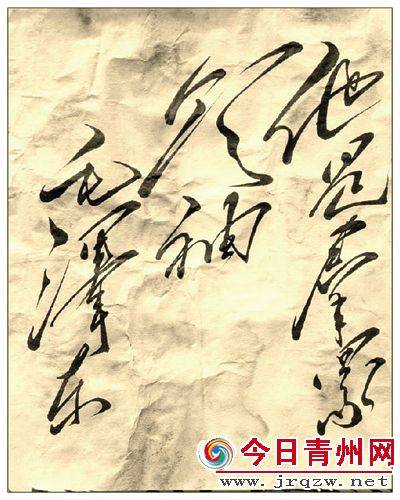 他是羣眾
領袖
毛澤东
今日青州网
www.jrqzw.net